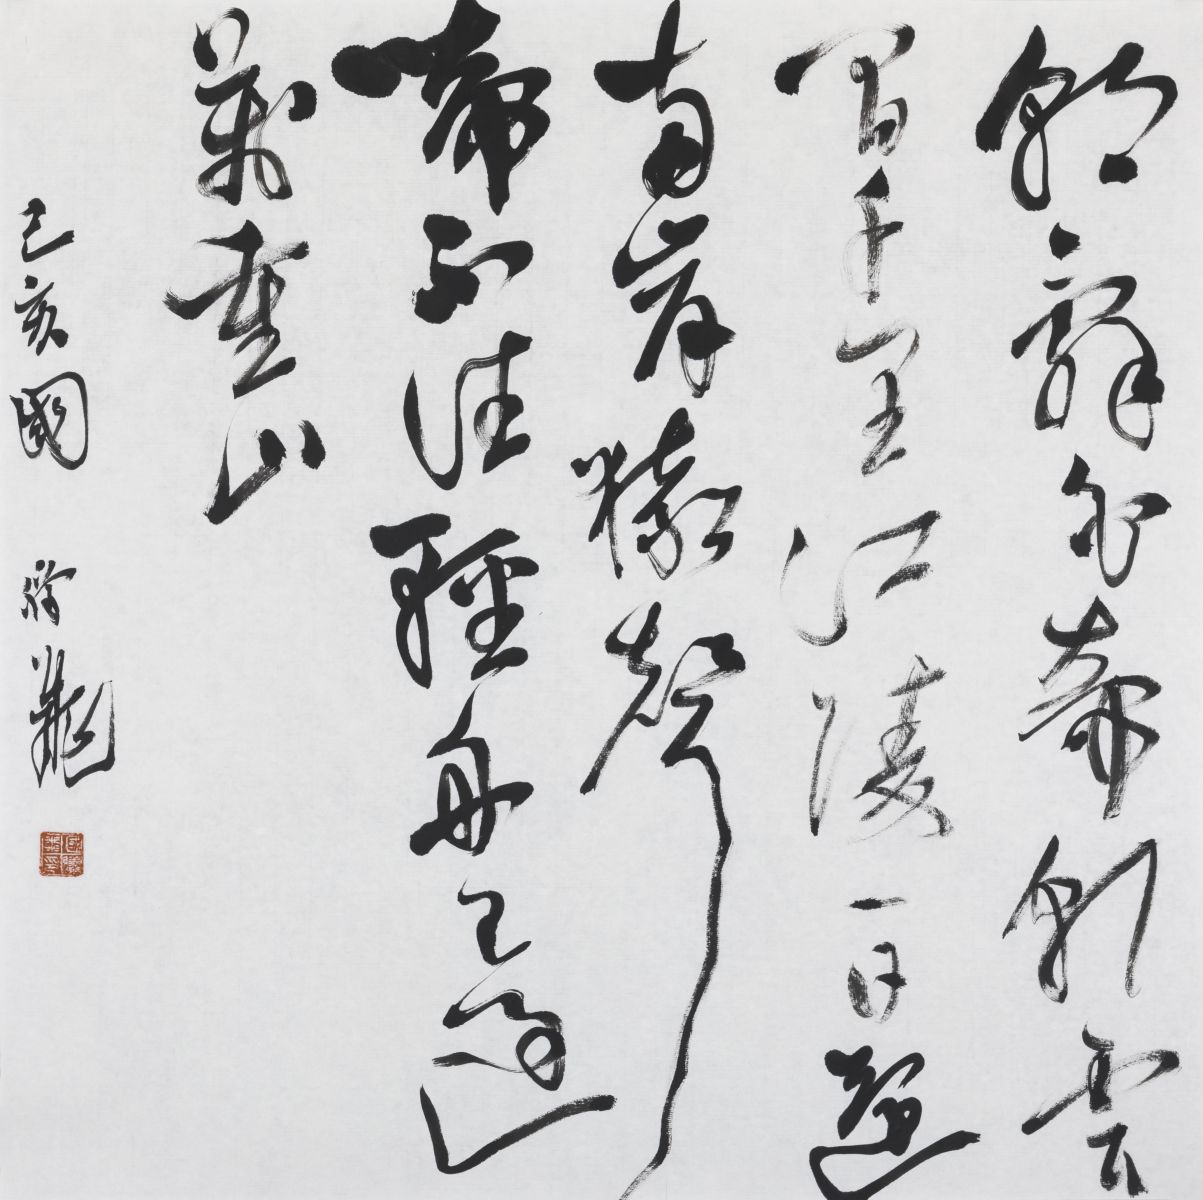 朝辭白帝彩雲
間千里江陵一日還
兩岸猿聲
啼不住輕舟已過
萬重山
己亥國